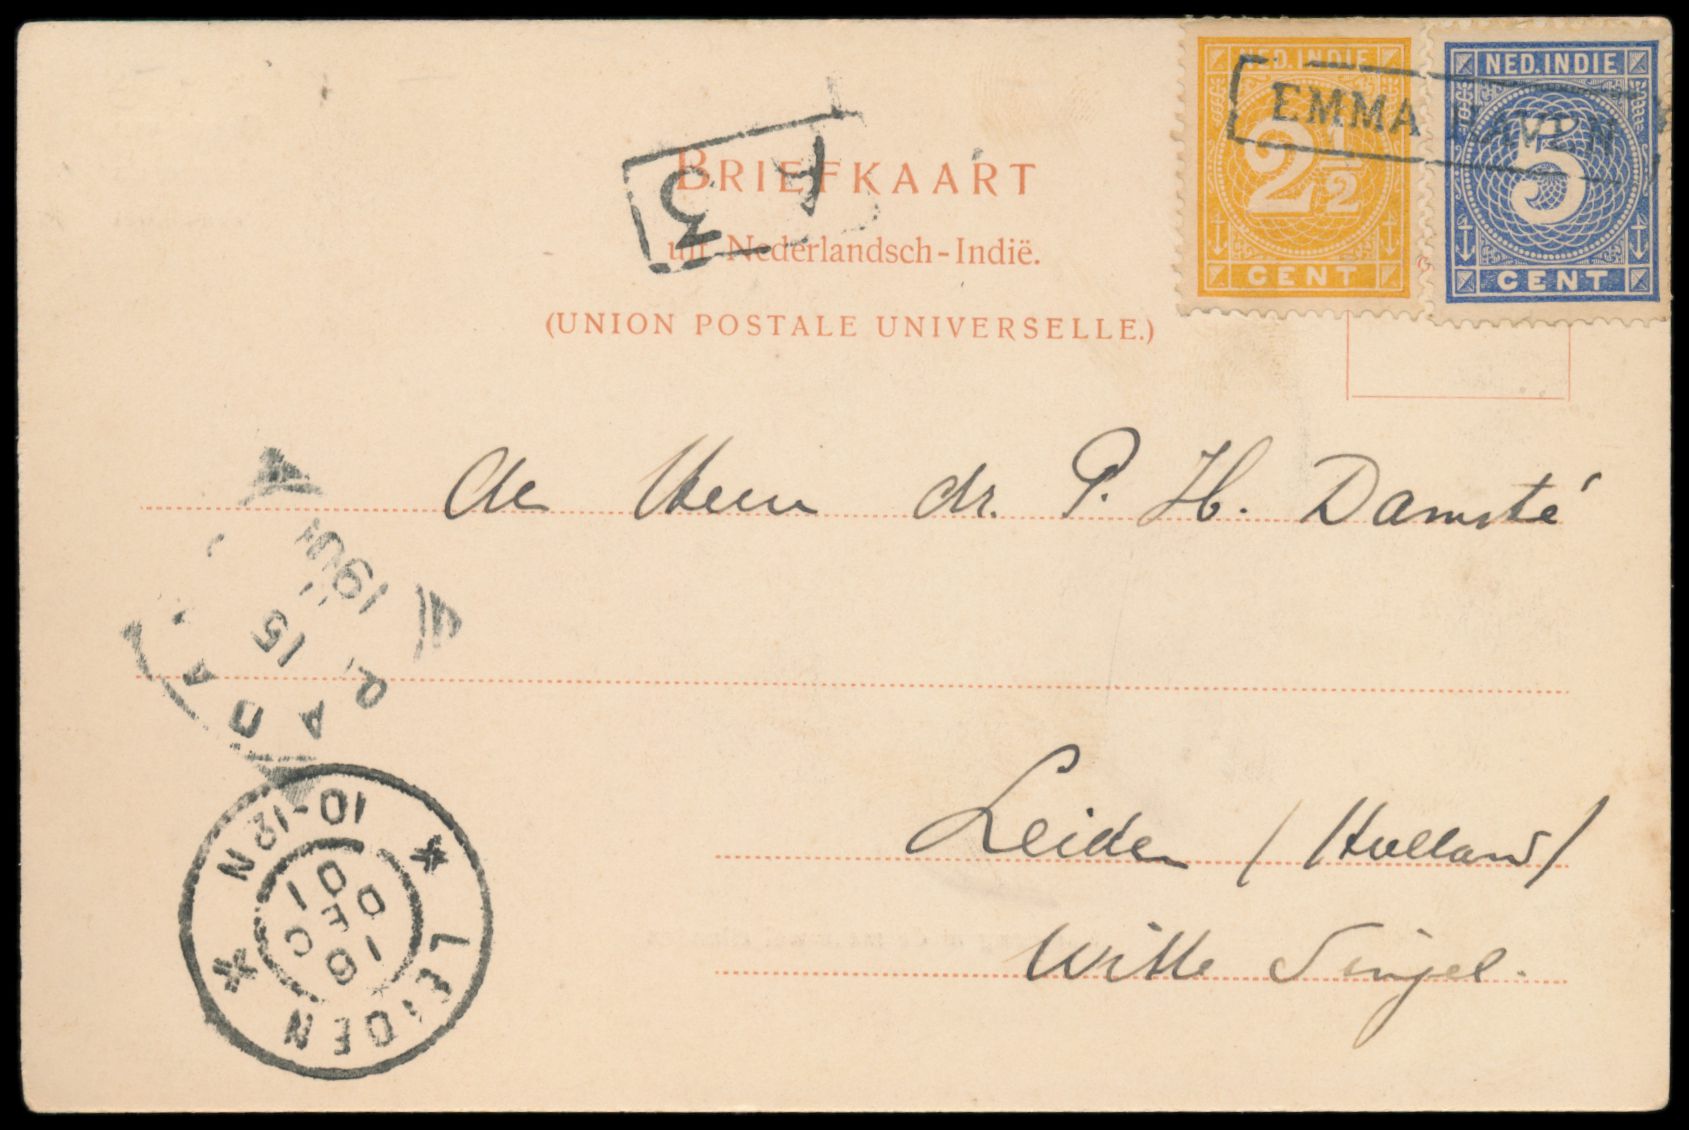 NED. INDIE
2½
CENT
NED. INDIE
5
CENT
EMMA HAVEN
BRIEFKAART
uit Nederlandsch-Indië.
(UNION POSTALE UNIVERSELLE.)
3
den Heer dr. P. H. Damsté
Leiden (Holland)
Witte Singel.
PADA
15
LEIDEN
10-12N
16
DEC
01